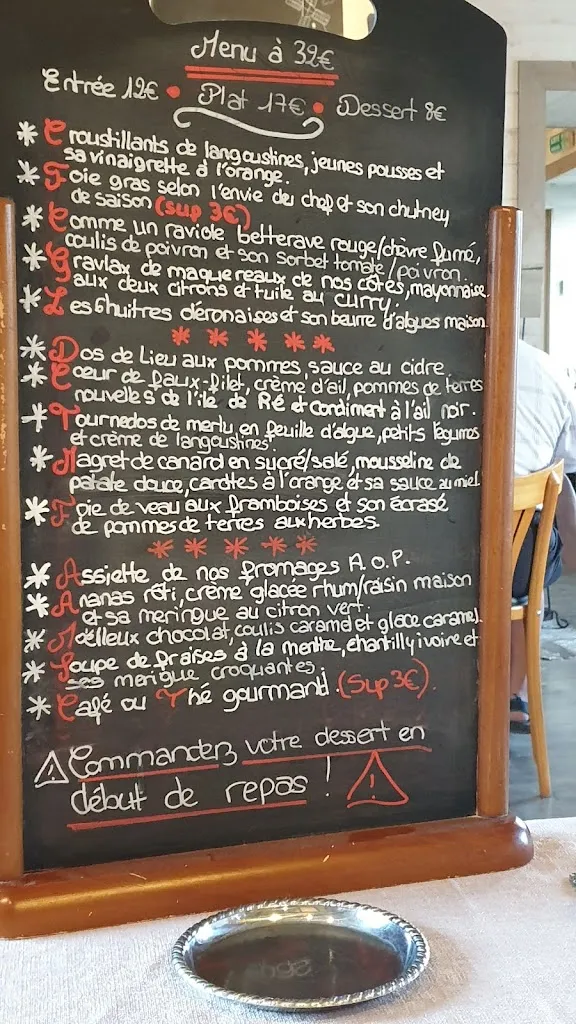 Menu à 32€
Entrée 12€ • Plat 17€ • Dessert 8€
* Croustillants de langoustines, jeunes pousses et
sa vinaigrette à l'orange.
* Foie gras selon l'envie du chef et son chutney
de saison (sup 3€)
* Comme un raviole betterave rouge/chèvre fumé,
coulis de poivron et son sorbet tomate/poivron.
* Gravlax de maquereaux de nos côtes, mayonnaise
aux deux citrons et tuile au curry.
* Les 6 huitres oléronaises et son beurre d'algues maison
* * * * *
* Dos de Lieu aux pommes, sauce au cidre
* Cœur de faux-filet, crème d'ail, pommes de terres
nouvelles de l'ile de Ré et condiment à l'ail noir.
* Tournedos de merlu en feuille d'algue, petits légumes
et crème de langoustines.
* Magret de canard en sucré/salé, mousseline de
patate douce, carottes à l'orange et sa sauce au miel
* Foie de veau aux framboises et son écrasé
de pommes de terres aux herbes.
* * * * *
* Assiette de nos fromages A.O.P.
* Ananas rôti, crème glacée rhum/raisin maison
et sa meringue au citron vert.
* Moëlleux chocolat, coulis caramel et glace caramel.
* Soupe de fraises à la menthe, chantilly ivoire et
ses merigue croquantes.
* Café ou Thé gourmand. (Sup 3€).
⚠ Commandez votre dessert en
début de repas ! ⚠